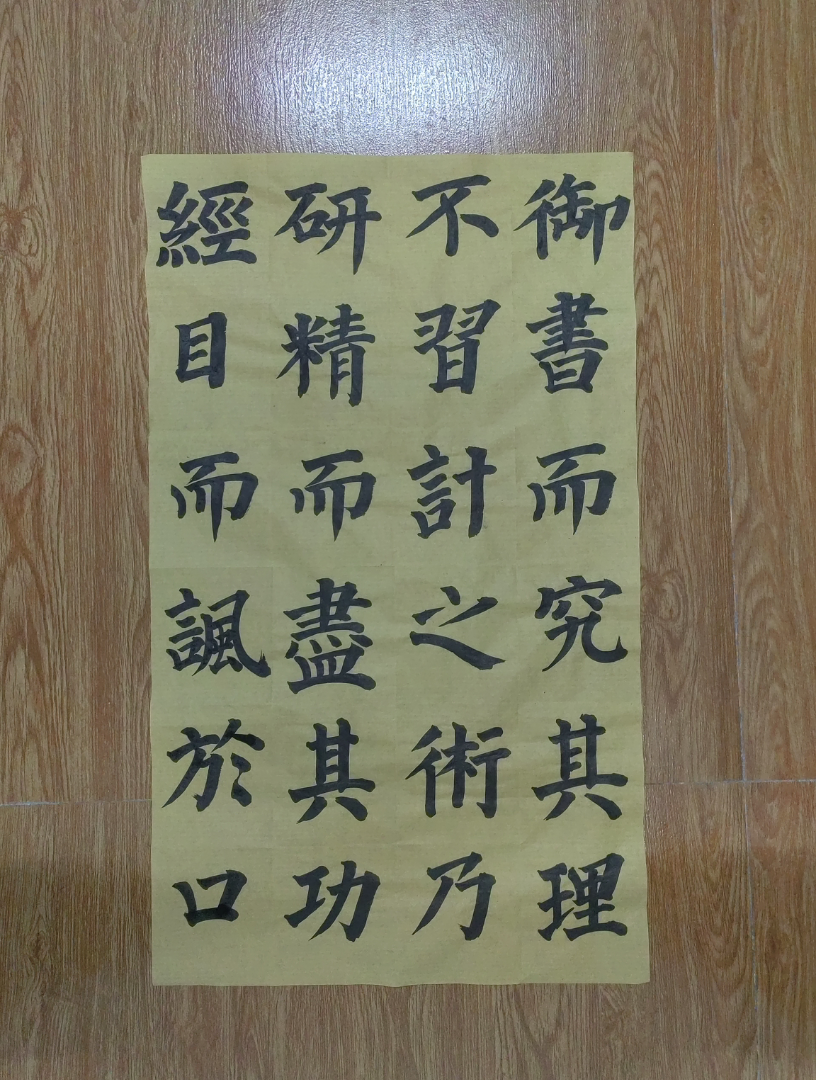 御書而究其理
不習計之術乃
研精而盡其功
經目而諷於口